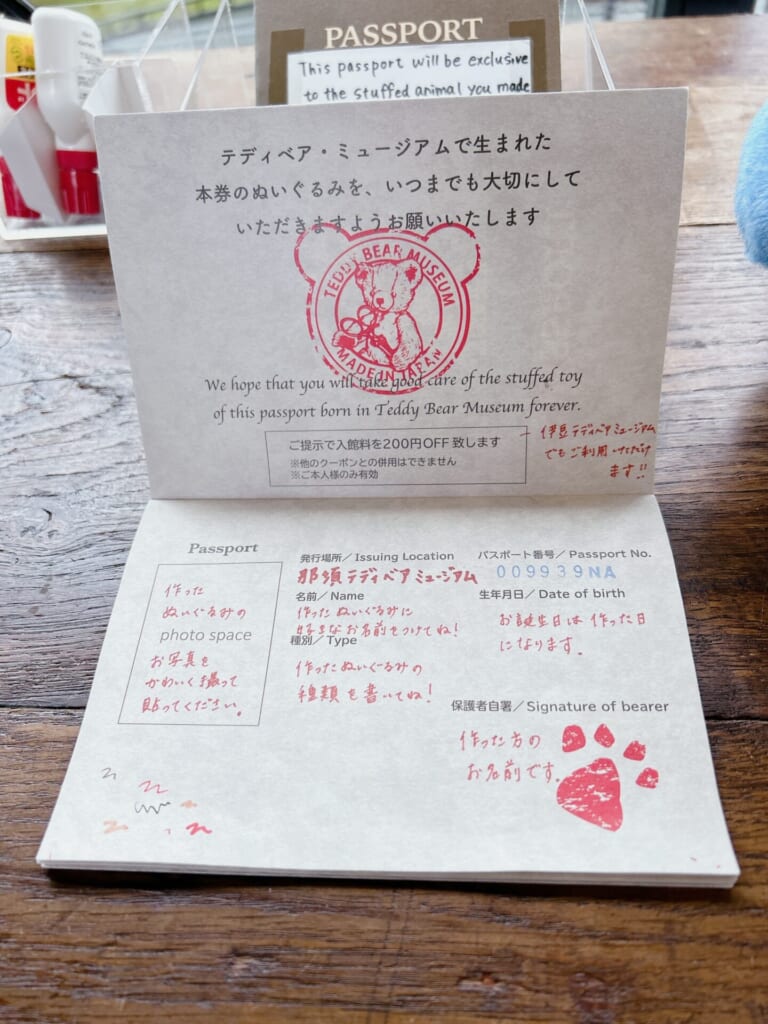 PASSPORT
This passport will be exclusive
to the stuffed animal you made
テディベア・ミュージアムで生まれた
本券のぬいぐるみを、いつまでも大切にして
いただきますようお願いいたします
TEDDY BEAR MUSEUM
MADE IN JAPAN
We hope that you will take good care of the stuffed toy
of this passport born in Teddy Bear Museum forever.
ご提示で入館料を200円OFF致します
※他のクーポンとの併用はできません
※ご本人様のみ有効
伊豆テディベアミュージアム
でもご利用いただけ
ます!!
Passport
作った
ぬいぐるみの
photo space
お写真を
かわいく撮って
貼ってください。
発行場所/Issuing Location
那須テディベアミュージアム
名前/Name
作ったぬいぐるみに
好きなお名前をつけてね!
種別/Type
作ったぬいぐるみの
種類を書いてね!
パスポート番号/Passport No.
009939NA
生年月日/Date of birth
お誕生日は作った日
になります。
保護者自署/Signature of bearer
作った方の
お名前です。